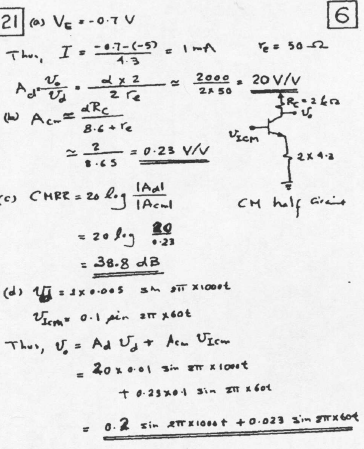 21 (a) V_E = -0.7 V
6
Thus, I = (-0.7-(-5))/4.3 = 1 mA r_e = 50 Ω
A_d = V_o/V_d = (α x 2)/(2 r_e) ≃ 2000/(2 x 50) = 20 V/V
(b) A_cm ≃ αR_C/(8.6 + r_e)
≃ 2/8.65 = 0.23 V/V
R_C = 2 kΩ
V_o
V_ICM
2 x 4.3
CM half Circuit
(c) CMRR = 20 log |Ad|/|Acm|
= 20 log 20/0.23
= 38.8 dB
(d) V_d = 2 x 0.005 sin 2π x 1000t
V_Icm = 0.1 sin 2π x 60t
Thus, V_o = A_d V_d + A_cm V_Icm
= 20 x 0.01 sin 2π x 1000t
+ 0.23 x 0.1 sin 2π x 60t
= 0.2 sin 2π x 1000t + 0.023 sin 2π x 60t